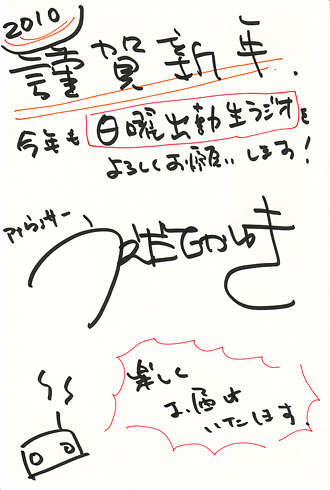 2010
謹賀新年.
今年も日曜出勤生ラジオを
よろしくお願いします!
アナウンサー
楽しく
お届け
いたします.